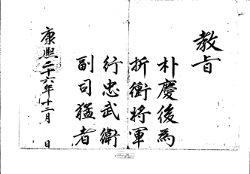 教旨
朴慶後為
折衝将軍
行忠武衛
副司猛者
康熙二十六年十二月 日